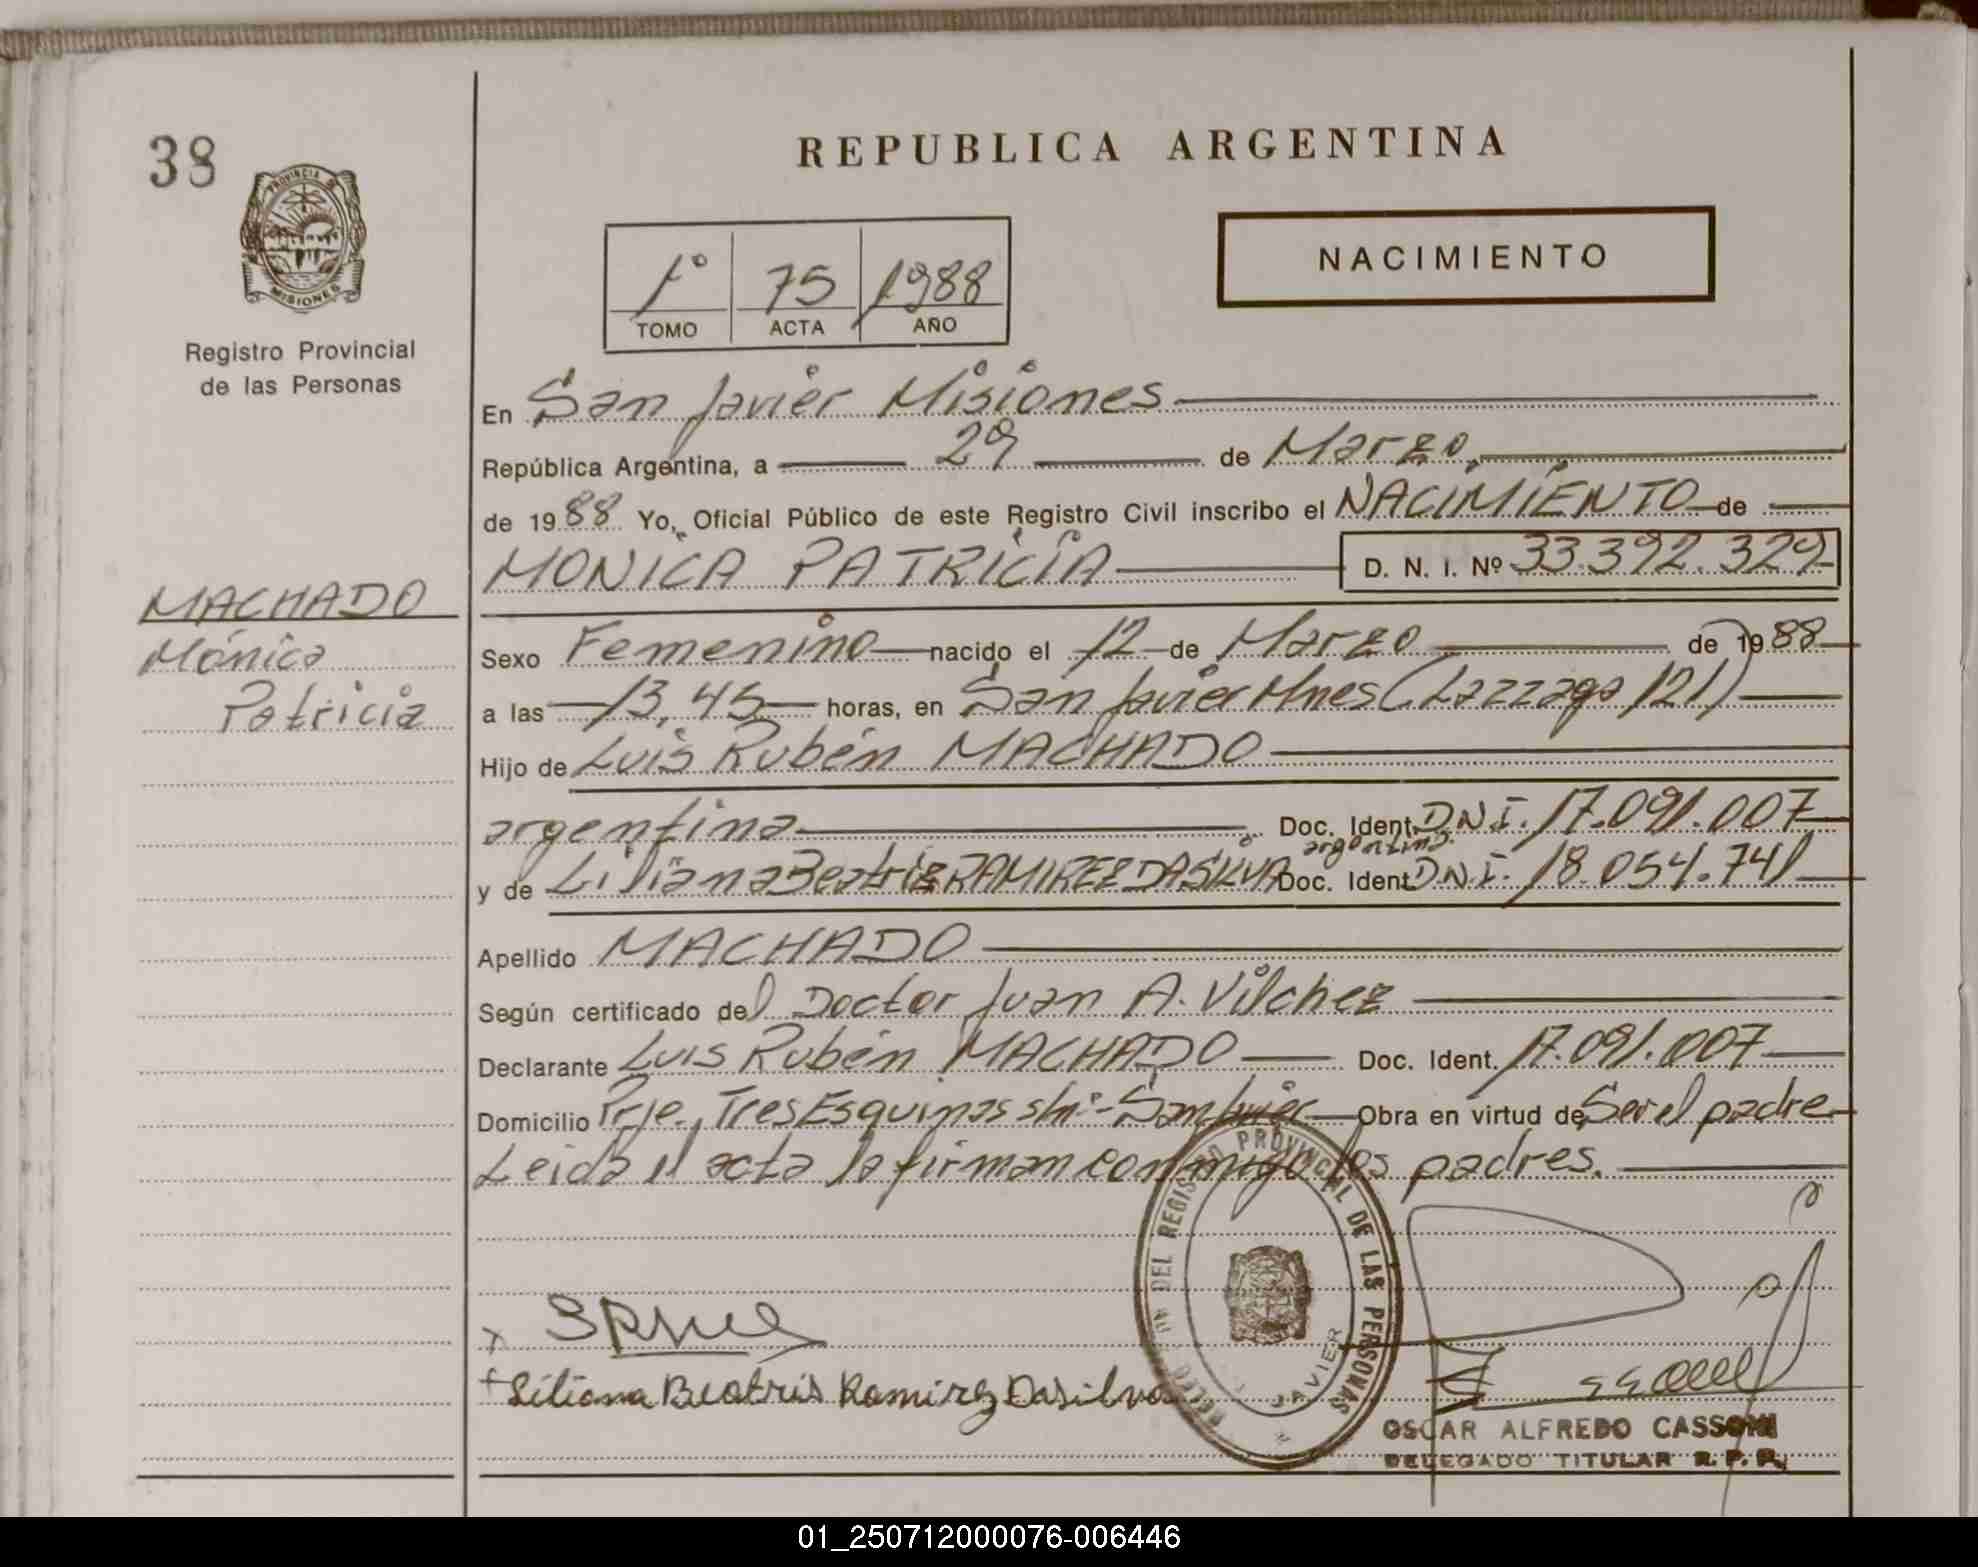 38
PROVINCIA DE
MISIONES
Registro Provincial
de las Personas
MACHADO
Mónica
Patricia
REPUBLICA ARGENTINA
1° 75 1988
TOMO ACTA AÑO
NACIMIENTO
En San Javier Misiones
República Argentina, a 29 de Marzo
de 1988 Yo, Oficial Público de este Registro Civil inscribo el NACIMIENTO de
MONICA PATRICIA D. N. I. Nº 33.392.329
Sexo Femenino nacido el 12 de Marzo de 1988
a las 13,45 horas, en San Javier Mnes (Lazzaga 121)
Hijo de Luis Rubén MACHADO
argentina Doc. Ident. D.N.I. 17.091.007
argentina
y de Liliana Beatriz RAMIREZ DASILVA Doc. Ident D.N.I. 18.054.741
Apellido MACHADO
Según certificado del Doctor Juan A. Vilchez
Declarante Luis Rubén MACHADO Doc. Ident. 17.091.007
Domicilio Prje. Tres Esquinas s/nº - San Javier Obra en virtud de Ser el padre
Leida el acta la firman conmigo los padres.
DEL REGISTRO PROVINCIAL DE LAS PERSONAS
JAVIER
Liliana Beatris Ramirez Dasilva
OSCAR ALFREDO CASSONI
DELEGADO TITULAR R. P. P.
01_250712000076-006446